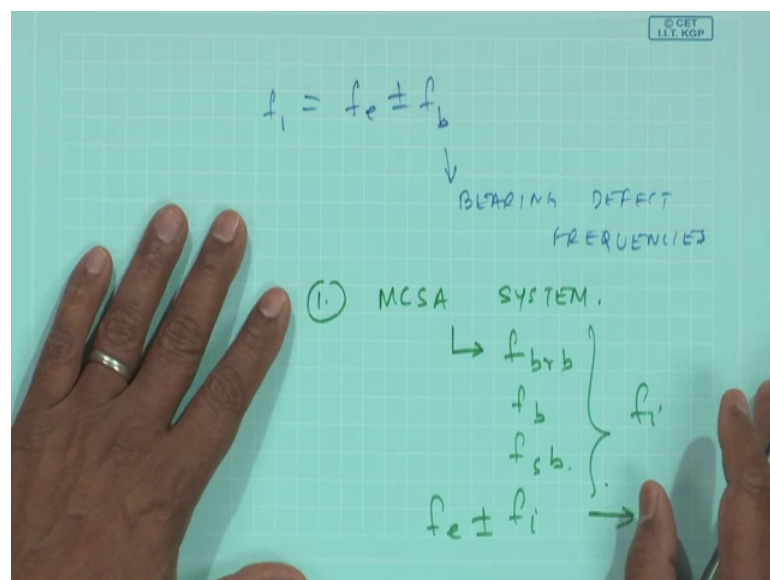 © CET
I.I.T. KGP
f₁ = fₑ ± f_b
BEARING DEFECT
FREQUENCIES
1. MCSA SYSTEM.
f_brb
f_b
f_sb.
fᵢ
fₑ ± fᵢ